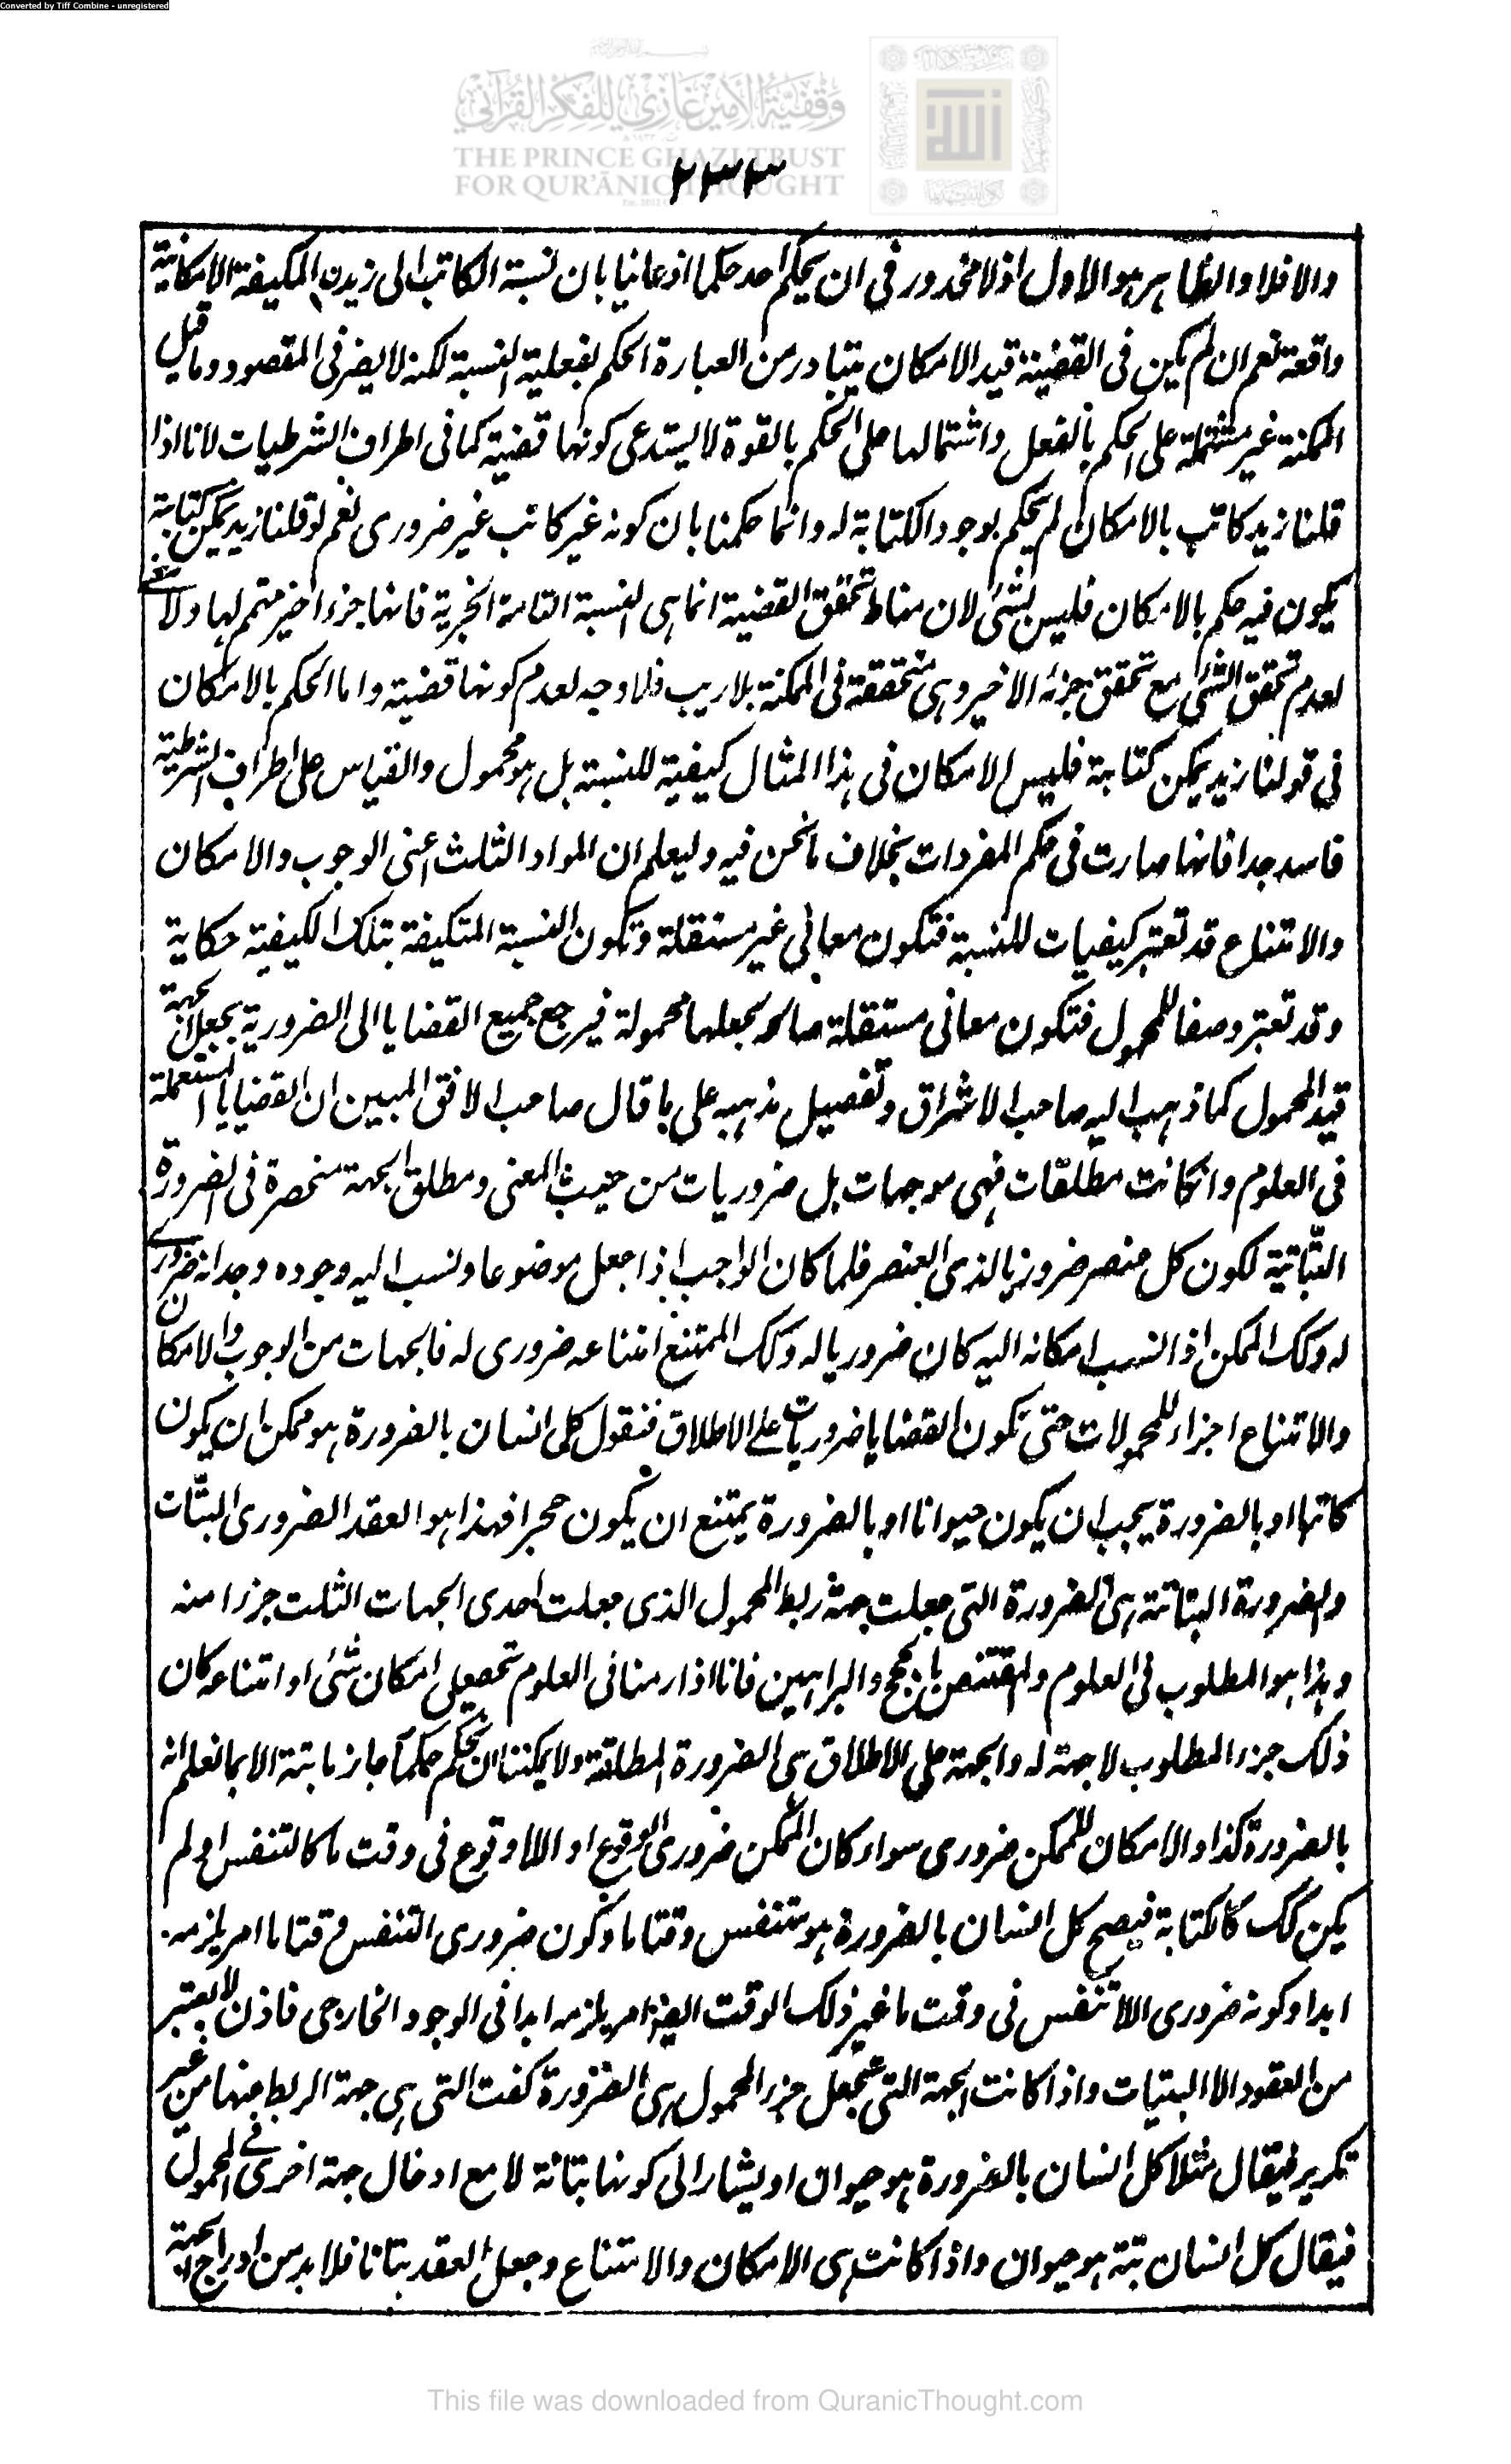 Converted by Tiff Combine - unregistered
وقفية الأمير غازي للفكر القرآني
THE PRINCE GHAZI TRUST
FOR QUR'ĀNIC THOUGHT
۲۳۳
والا فلا والظاهر هو الاول اذ لا محذور فى ان يحكم احد حكما اذعانيا بان نسبة الكاتب الى زيدن المكيفة الامكانية
واقعة نعم ان لم يكن فى القضية قيد الامكان يتبادر من العبارة الحكم بفعلية النسبة لكنه لا يضر فى المقصود وما قيل
الممكنة غير مشتملة على الحكم بالفعل واشتمالها على الحكم بالقوة لا يستدعى كونها قضية كما فى اطراف الشرطيات لانا اذا
قلنا زيد كاتب بالامكان لم يحكم بوجود الكتابة له وانما حكمنا بان كونه غير كاتب غير ضرورى نعم لو قلنا زيد يمكن كتابته
يكون فيه حكم بالامكان فليس بشئ لان مناط تحقق القضية انما هى النسبة التامة الخبرية فانها جزء اخير متمم لها ولا معنى
لعدم تحقق الشئ مع تحقق جزئه الاخير وهى متحققة فى الممكنة بلا ريب فلا وجه لعدم كونها قضية واما الحكم بالامكان
فى قولنا زيد يمكن كتابة فليس الامكان فى هذا المثال كيفية للنسبة بل هو محمول والقياس على اطراف الشرطية
فاسد جدا فانها صارت فى حكم المفردات بخلاف ما نحن فيه وليعلم ان المواد الثلث اعنى الوجوب والامكان
والامتناع قد تعتبر كيفيات للنسبة فتكون معانى غير مستقلة وتكون النسبة المتكيفة بتلك الكيفية حكاية
وقد تعتبر وصفا للمحمول فتكون معانى مستقلة صالحة لجعلها محمولة فيرجع جميع القضايا الى الضرورية بجعل الجهة
قيد المحمول كما ذهب اليه صاحب الاشراق وتفصيل مذهبه على ما قال صاحب الافق المبين ان القضايا المستعملة
فى العلوم وانكانت مطلقات فهى موجهات بل ضروريات من حيث المعنى ومطلق الجهة منحصرة فى الضرورة
البتّاتية لكون كل عنصر ضروريا لذى العنصر فلما كان الواجب اذا جعل موضوعا ونسب اليه وجوده وجد انه ضرورى
له وكك الممكن اذا نسب امكانه اليه كان ضروريا له وكك الممتنع امتناعه ضرورى له فالجهات من الوجوب والامكان
والامتناع اجزاء للمحمولات حتى تكون القضايا ضروريات على الاطلاق فنقول كل انسان بالضرورة هو ممكن ان يكون
كاتبا او بالضرورة يجب ان يكون حيوانا او بالضرورة يمتنع ان يكون حجرا فهذا هو العقد الضرورى البتّات
والضرورة البتاتة هى الضرورة التى جعلت جهة ربط المحمول الذى جعلت احدى الجهات الثلث جزءا منه
وهذا هو المطلوب فى العلوم والمقتنص بالحجج والبراهين فانا اذا رمنا فى العلوم تحصيل امكان شئ او امتناعه كان
ذلك جزء المطلوب لا جهة له والجهة على الاطلاق هى الضرورة المطلقة ولا يمكننا ان نحكم حكما جازما بتة الا بما نعلم انه
بالضرورة كذا والامكان للممكن ضرورى سواء كان الممكن ضرورى الوقوع او اللاوقوع فى وقت ما كالتنفس او لم
يكن كك كالكتابة فيصح كل انسان بالضرورة هو متنفس وقتا ما وكون ضرورى التنفس وقتا ما امر يلزمه
ابدا وكونه ضرورى اللاتنفس فى وقت ما غير ذلك الوقت ايضا امر يلزمه ابدا فى الوجود الخارجى فاذن لا يعتبر
من العقود الا البتيات واذا كانت الجهة التى تجعل جزء المحمول هى الضرورة كفت التى هى جهة الربط عنها من غير
تكرير فيقال مثلا كل انسان بالضرورة هو حيوان او يشار الى كونها بتاتة لا مع ادخال جهة اخرى فى المحمول
فيقال كل انسان بتة هو حيوان واذا كانت هى الامكان والامتناع وجعل العقد بتاتا فلا بد من ادراج الجهة
This file was downloaded from QuranicThought.com